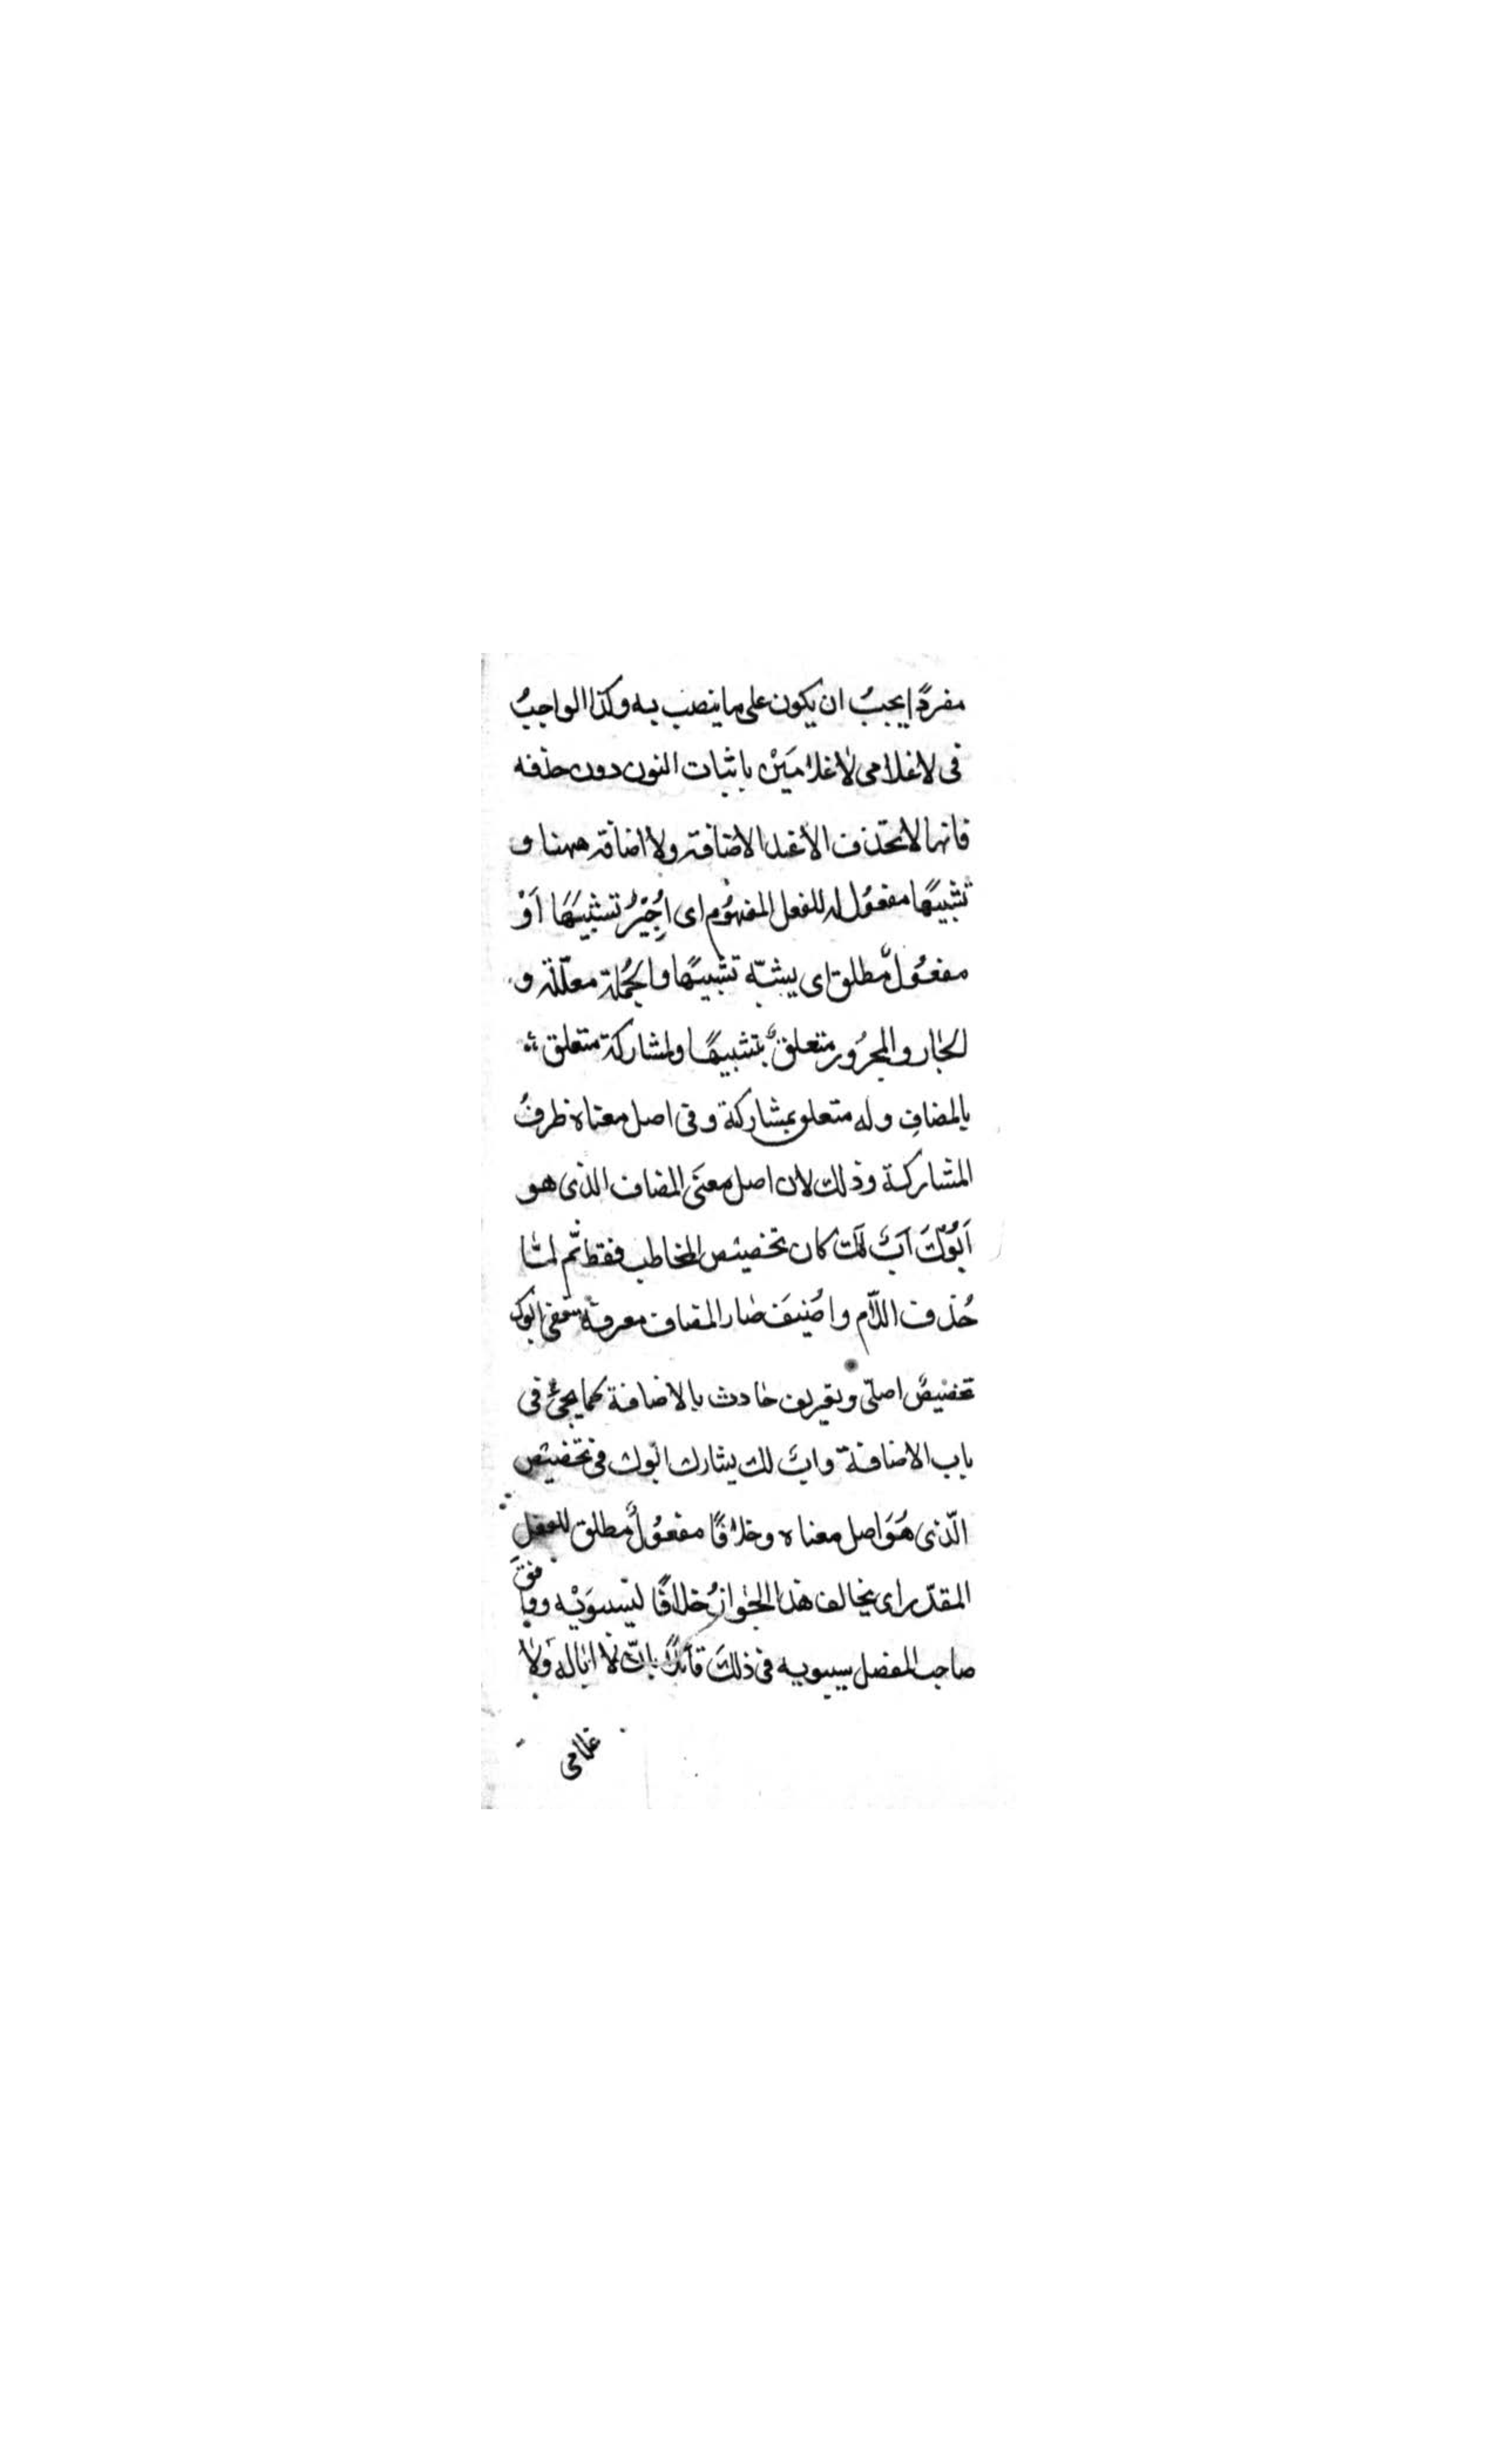 مفردًا يجبُ ان يكون على ما ينصب به وكذا الواجبُ
فى لاغلامى لاغلامَيْن باثبات النون دون حذفه
فانها لا تحذف الا عند الاضافة ولا اضافة ههنا و
تشبيهًا مفعُول له للفعل المفهُوم اى اُجِيْزُ تشبيهًا اَوْ
مفعُولٌ مطلق اى يشبّه تشبيهًا والجُملة معلّلة و
الجار والمجرُور متعلقٌ بتشبيهًا ولمشاركة متعلق
بالمضافِ وله متعلق بمشاركة وفى اصل معناه ظرفُ
المشاركة وذلك لان اصل معنَى المضاف الذى هو
اَبُوْكَ اَبٌ لَكَ كان تخصيص المخاطب فقط ثم لمّا
حُذف اللّام واُضِيْفَ صار المضاف معرفة ففى ابوك
تخصيصٌ اصلىّ وتعريف حادث بالاضافة كما يجئُ فى
باب الاضافة واب لك يشارك ابوك فى تخصيص
الّذى هُوَ اصل معناه وخلافًا مفعُولٌ مطلق للفعل
المقدّر اى يخالف هذا الجوازُ خلافًا لسيبوَيْه ووافقَ
صاحب المفصل سيبويه فى ذلكَ قائلاً بانّ لا ابا له وَلا
غلامى